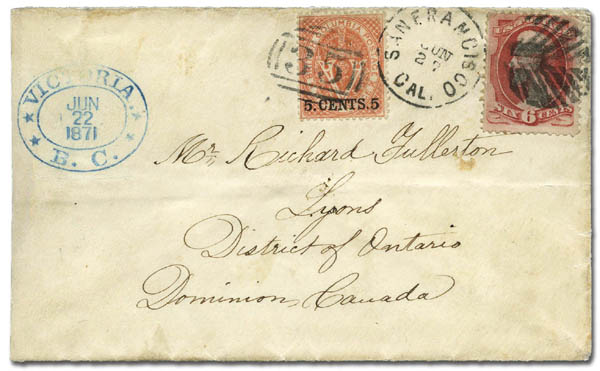 VICTORIA.
JUN
22
1871
B. C.
35
5.CENTS.5
SAN FRANCISCO
JUN
27
CAL.
SIX 6 CENTS
Mr. Richard Fullerton
Lyons
District of Ontario
Dominion, Canada